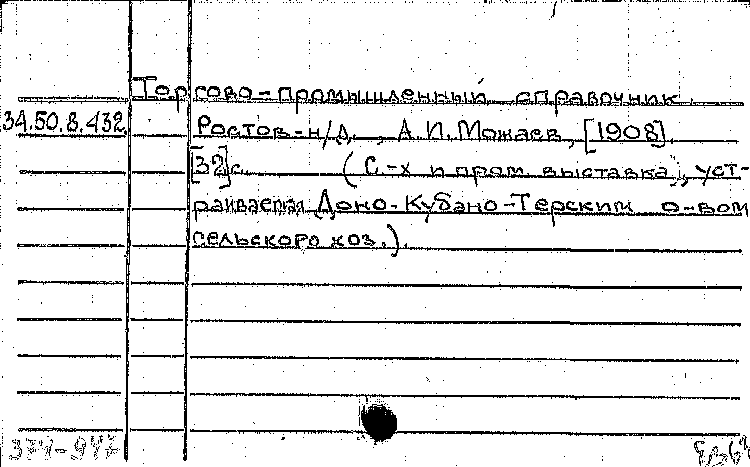 Торгово-промышленный справочник.
34.50.8.432 Ростов-н/Д., А.И. Можаев, [1908].
[32]с. (С.-х и пром. выставка, уст-
раиваемая Доно-Кубано-Терским о-вом
сельского хоз.).
374-947